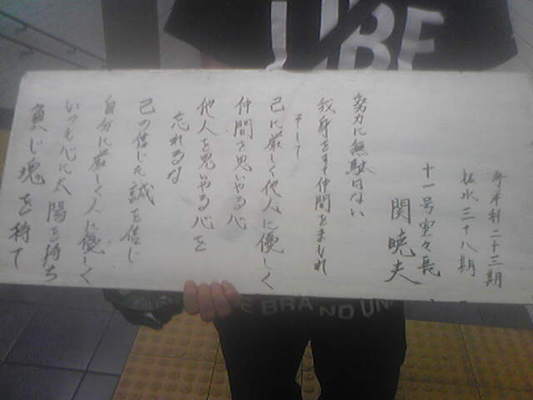 二十三期
三十八期
十一号室々長
関 暁夫
努力に無駄はない
我身をすて仲間をまもれ
そして
己に厳しく他人に優しく
仲間を思いやる心
他人を思いやる心を
忘れるな
己の信じた誠を信じ
自分に厳しく人に優しく
いつも心に太陽を持ち
負じ魂を持て
UBE
BRAND UN